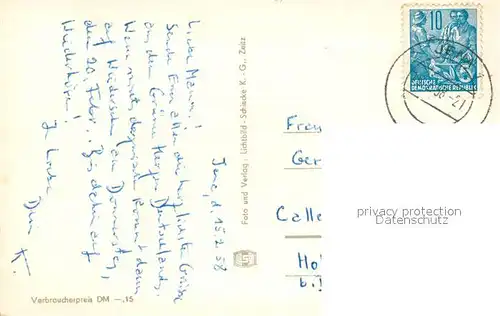 Jena, d. 15.2.58
Liebe Mama!
Sende Euch allen die herzlichsten Grüße
aus dem Grünen Herzen Deutschlands.
Wenn nichts dazwischen kommt dann
auf Wiedersehen am Donnerstag,
den 20. Febr. Bis dahin auf
Wiederhören!
In Liebe
Dein
K.
Foto und Verlag: Lichtbild-Schincke K.-G., Zeitz
Verbraucherpreis DM -.15
10
DEUTSCHE
DEMOKRATISCHE REPUBLIK
JENA
Frau
Ger
Calle
Hol
b.
privacy protection
Datenschutz